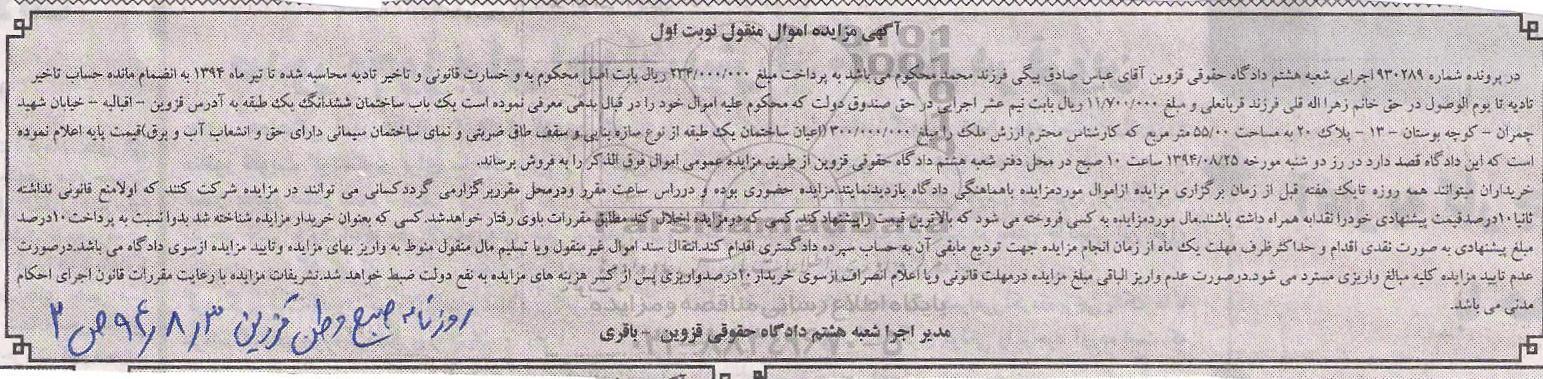 آگهی مزایده اموال منقول نوبت اول
در پرونده شماره ۹۳۰۲۸۹ اجرایی شعبه هشتم دادگاه حقوقی قزوین آقای عباس صادق بیگی فرزند محمد محکوم می باشد به پرداخت مبلغ ۲۳۴/۰۰۰/۰۰۰ ریال بابت اصل محکوم به و خسارت قانونی و تاخیر تادیه محاسبه شده تا تیر ماه ۱۳۹۴ به انضمام مانده حساب تاخیر
تادیه تا یوم الوصول در حق خانم زهرا اله قلی فرزند قربانعلی و مبلغ ۱۱/۷۰۰/۰۰۰ ریال بابت نیم عشر اجرایی در حق صندوق دولت که محکوم علیه اموال خود را در قبال بدهی معرفی نموده است یک باب ساختمان ششدانگ یک طبقه به آدرس قزوین - اقبالیه - خیابان شهید
چمران - کوچه بوستان - ۱۳ - پلاک ۲۰ به مساحت ۵۵/۰۰ متر مربع که کارشناس محترم ارزش ملک را مبلغ ۳۰۰/۰۰۰/۰۰۰ (اعیان ساختمان یک طبقه از نوع سازه بنایی و سقف طاق ضربتی و نمای ساختمان سیمانی دارای حق و انشعاب آب و برق)قیمت پایه اعلام نموده
است که این دادگاه قصد دارد در رز دو شنبه مورخه ۱۳۹۴/۰۸/۲۵ ساعت ۱۰ صبح در محل دفتر شعبه هشتم دادگاه حقوقی قزوین از طریق مزایده عمومی اموال فوق الذکر را به فروش برساند.
خریداران میتوانند همه روزه تایک هفته قبل از زمان برگزاری مزایده ازاموال موردمزایده باهماهنگی دادگاه بازدیدنمایند.مزایده حضوری بوده و درراس ساعت مقرر ودرمحل مقرربرگزارمی گرددکسانی می توانند در مزایده شرکت کنند که اولامنع قانونی نداشته
ثانیا۱۰درصدقیمت پیشنهادی خودرا نقدابه همراه داشته باشند.مال موردمزایده به کسی فروخته می شود که بالاترین قیمت راپیشنهادکند.کسی که درمزایده اخلال کند مطابق مقررات باوی رفتار خواهدشد.کسی که بعنوان خریدار مزایده شناخته شد بدوا نسبت به پرداخت۱۰درصد
مبلغ پیشنهادی به صورت نقدی اقدام و حداکثرظرف مهلت یک ماه از زمان انجام مزایده جهت تودیع مابقی آن به حساب سپرده دادگستری اقدام کند.انتقال سند اموال غیرمنقول ویا تسلیم مال منقول منوط به واریز بهای مزایده وتایید مزایده ازسوی دادگاه می باشد.درصورت
عدم تایید مزایده کلیه مبالغ واریزی مسترد می شود.درصورت عدم واریز الباقی مبلغ مزایده درمهلت قانونی ویا اعلام انصراف ازسوی خریدار۱۰درصدواریزی پس از کسر هزینه های مزایده به نفع دولت ضبط خواهد شد.تشریفات مزایده با رعایت مقررات قانون اجرای احکام
مدنی می باشد.
مدیر اجرا شعبه هشتم دادگاه حقوقی قزوین - باقری
روزنامه صبح وطن قزوین ۹۴/۸/۳ ص ۳
پایگاه اطلاع رسانی مناقصه و مزایده